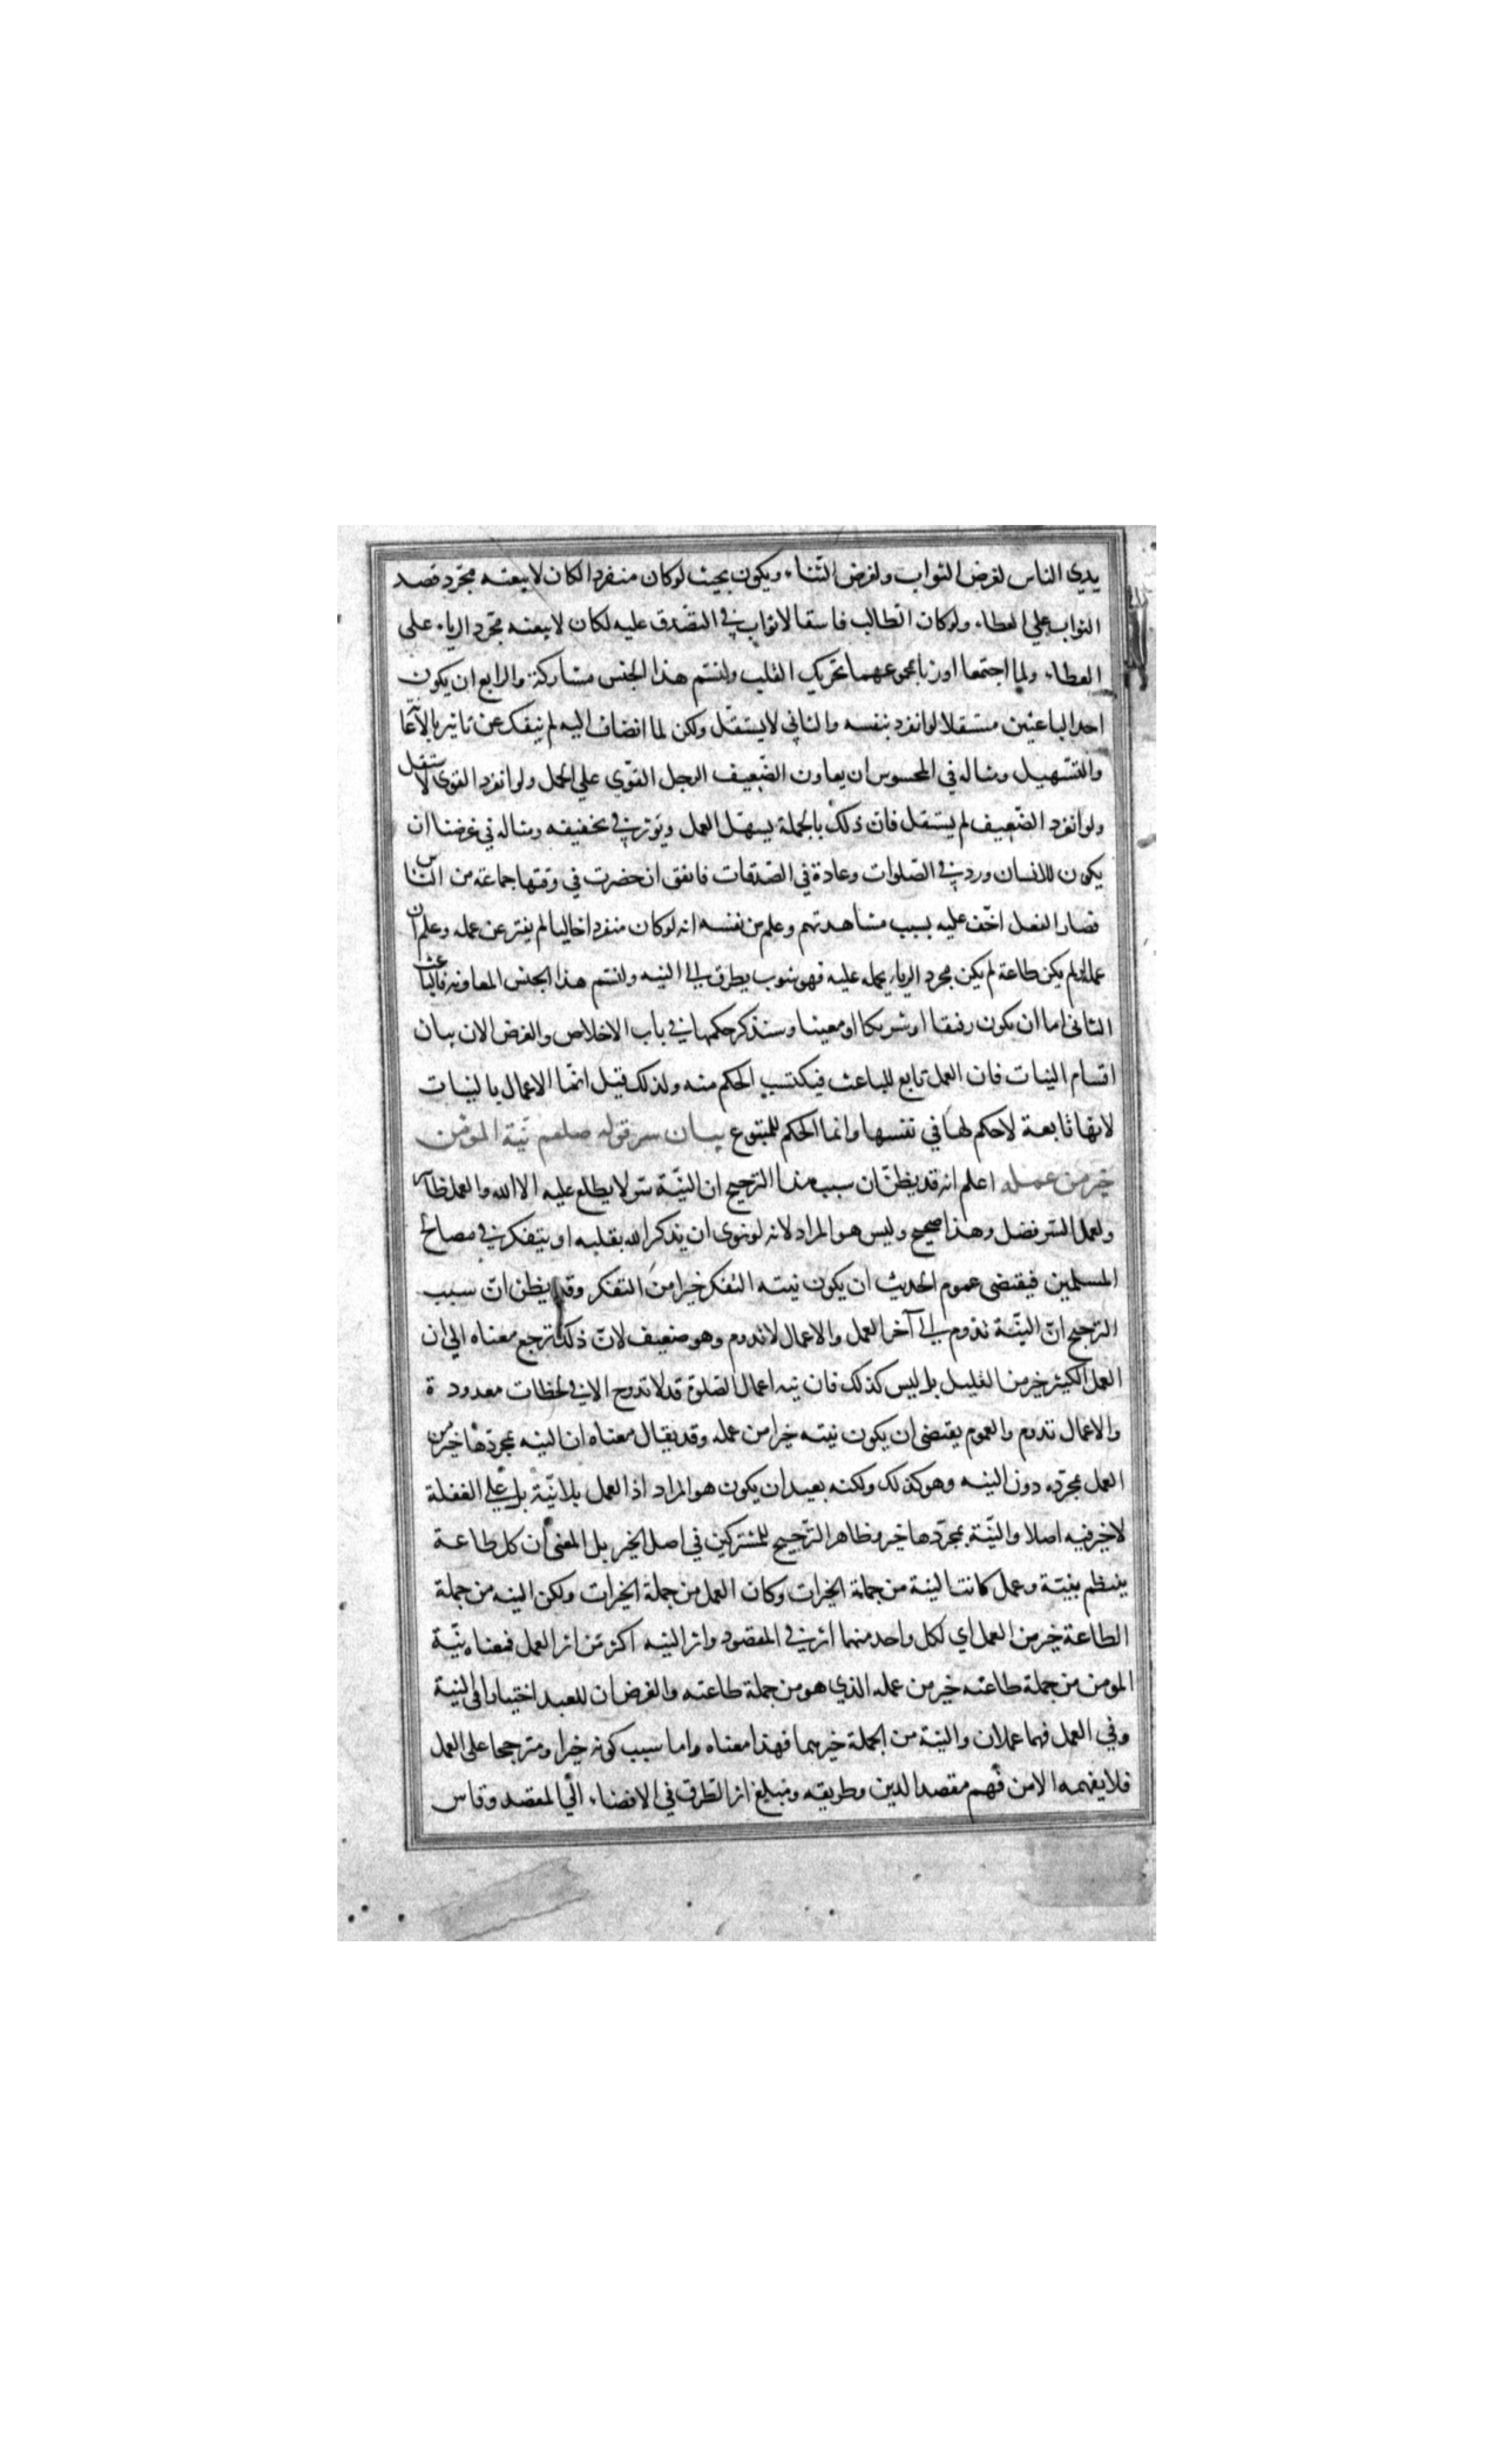 يدي الناس لغرض الثواب ولغرض الثناء ويكون بحيث لوكان منفردا لكان لا يبعثه مجرد قصد
الثواب علي العطاء ولوكان الطالب فاسقا لا ثواب في التصدق عليه لكان لا يبعثه مجرد الرياء علي
العطاء ولما اجتمعا اورثا بمجموعهما تحريك القلب ولنسم هذا الجنس مشاركة والرابع ان يكون
احد الباعثين مستقلا لو انفرد بنفسه والثاني لا يستقل ولكن لما انضاف اليه لم ينفك عن تاثير بالاعانة
والتسهيل ومثاله في المحسوس ان يعاون الضعيف الرجل القوي علي الحمل ولو انفرد القوي لاستقل
ولو انفرد الضعيف لم يستقل فان ذلك بالجملة يسهل العمل ويوثر في تخفيفه ومثاله في غرضنا ان
يكون للانسان ورد في الصلوات وعادة في الصدقات فاتفق ان حضرت في وقتها جماعة من الناس
فصار الفعل اخف عليه بسبب مشاهدتهم وعلم من نفسه انه لوكان منفردا خاليا لم يفتر عن عمله وعلم ان
عمله لو لم يكن طاعة لم يكن مجرد الرياء يحمله عليه فهو شوب يطرق الي النيه ولنسم هذا الجنس المعاونه فالباعث
الثاني اما ان يكون رفيقا او شريكا او معينا وسنذكر حكمها في باب الاخلاص والغرض الان بيان
اقسام النيات فان العمل تابع للباعث فيكتسب الحكم منه ولذلك قيل انما الاعمال بالنيات
لانها تابعة لا حكم لها في نفسها وانما الحكم للمتبوع بيان سر قوله صلعم نية المومن
خير من عمله اعلم انه قد يظن ان سبب هذا الترجيح ان النية سر لا يطلع عليه الا الله والعمل ظاهر
ولعمل السر فضل وهذا صحيح وليس هو المراد لانه لو نوي ان يذكر الله بقلبه او يتفكر في مصالح
المسلمين فيقتضي عموم الحديث ان يكون نيته التفكر خيرا من التفكر وقد يظن ان سبب
الترجيح ان النية تدوم الي آخر العمل والاعمال لا تدوم وهو ضعيف لان ذلك ترجع معناه الي ان
العمل الكثير خير من القليل بل ليس كذلك فان نيه اعمال الصلوة قد لا تدوم الا في لحظات معدودة
والاعمال تدوم والعموم يقتضي ان يكون نيته خيرا من عمله وقد يقال معناه ان النيه بمجردها خير من
العمل بمجرده دون النيه وهو كذلك ولكنه بعيد ان يكون هو المراد اذ العمل بلا نية بل علي الغفلة
لا خير فيه اصلا والنية بمجردها خير وظاهر الترجيح للمشتركين في اصل الخير بل المعني ان كل طاعة
ينتظم بنية وعمل كانت النية من جملة الخيرات وكان العمل من جملة الخيرات ولكن النيه من جملة
الطاعة خير من العمل اي لكل واحد منهما اثر في المقصود واثر النيه اكثر من اثر العمل فمعناه نية
المومن من جملة طاعته خير من عمله الذي هو من جملة طاعته والغرض ان للعبد اختيارا في النية
وفي العمل فهما عملان والنية من الجملة خيرهما فهذا معناه واما سبب كونه خيرا ومترجحا علي العمل
فلا يفهمه الا من فهم مقصد الدين وطريقه ومبلغ اثر الطرق في الافضاء الي المقصد وقاس